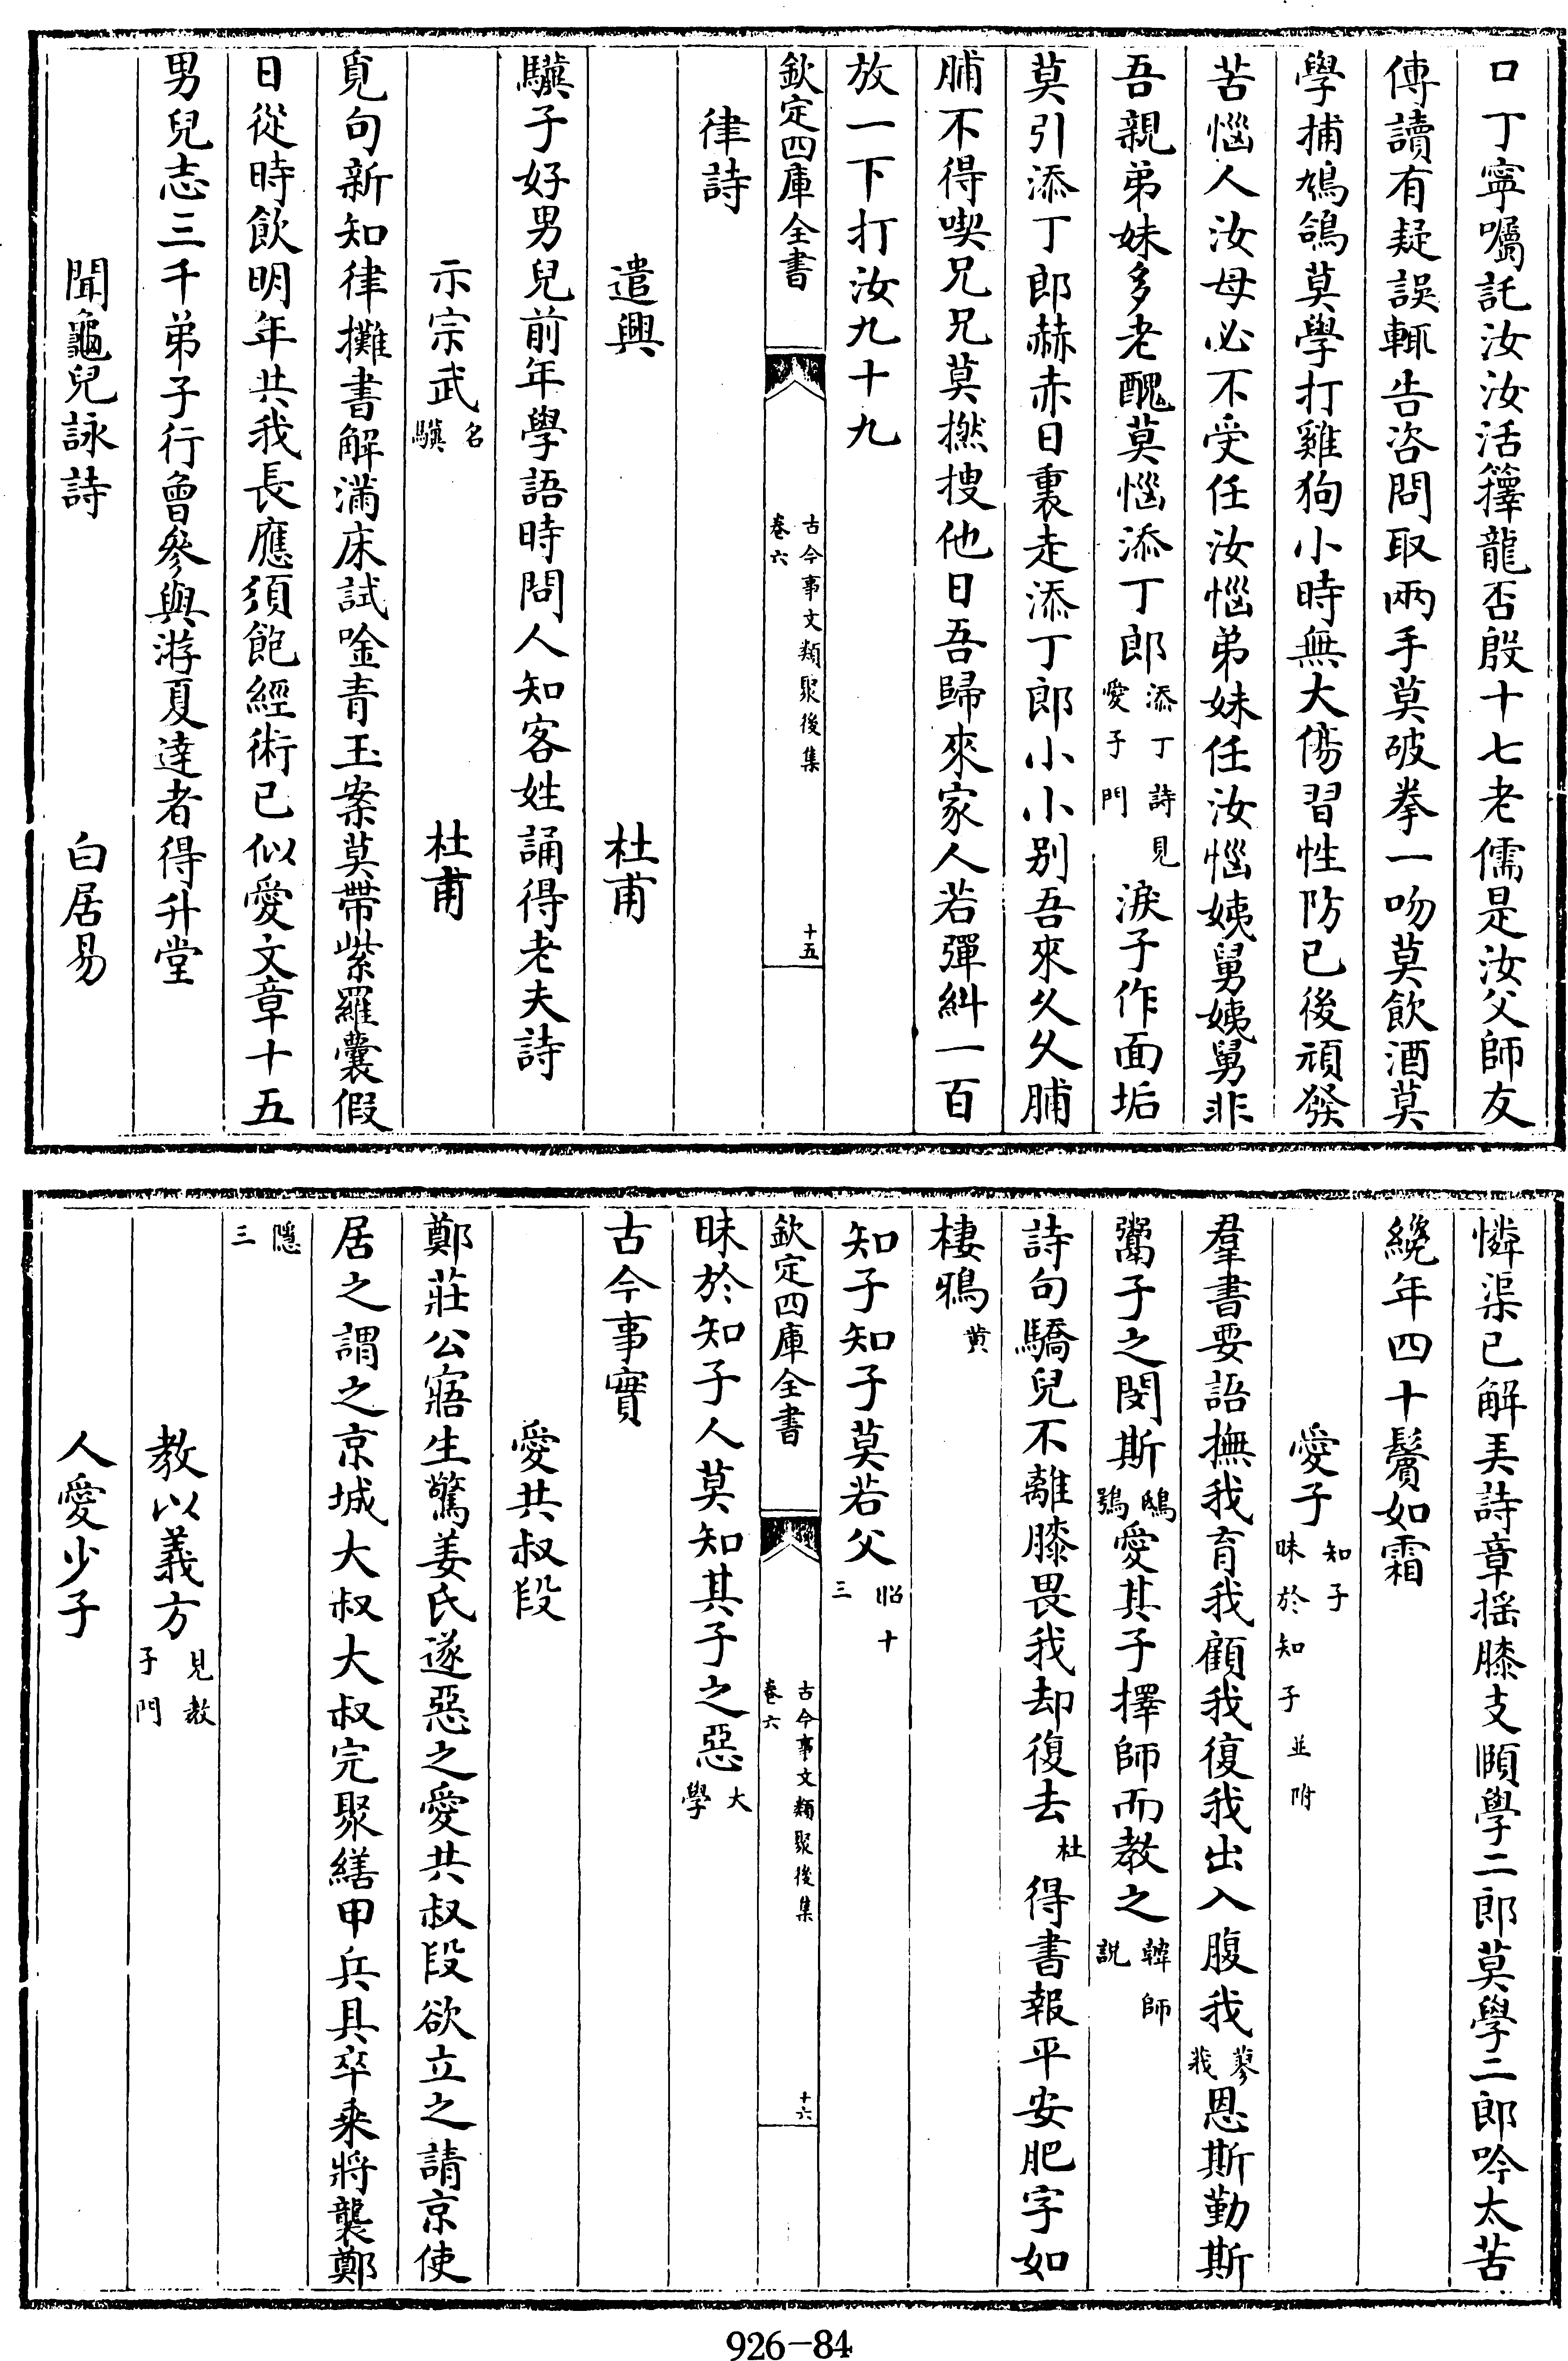 口丁寧囑託汝汝活籜龍否殷十七老儒是汝父師友
傳讀有疑誤輒告咨問取兩手莫破拳一吻莫飲酒莫
學捕鳩鴿莫學打雞狗小時無大傷習性防已後頑發
苦惱人汝母必不受任汝惱弟妹任汝惱姨舅姨舅非
吾親弟妹多老醜莫惱添丁郎添丁詩見愛子門淚子作面垢
莫引添丁郎赫赤日裏走添丁郎小小别吾來久久脯
脯不得喫兄兄莫撚搜他日吾歸來家人若彈糾一百
放一下打汝九十九
欽定四庫全書 古今事文類聚後集卷六 十五
律詩
遣興 杜甫
驥子好男兒前年學語時問人知客姓誦得老夫詩
示宗武名驥 杜甫
覓句新知律攤書解滿床試唫青玉案莫帶紫羅囊假
日從時飲明年共我長應須飽經術已似愛文章十五
男兒志三千弟子行曾參與游夏達者得升堂
聞龜兒詠詩 白居易
憐渠已解弄詩章摇膝支頤學二郎莫學二郎吟太苦
纔年四十鬢如霜
愛子知子昧於知子並附
羣書要語撫我育我顧我復我出入腹我蓼莪恩斯勤斯
鬻子之閔斯鴟鴞愛其子擇師而教之韓師說
詩句驕兒不離膝畏我却復去杜得書報平安肥字如
棲鴉黄
知子知子莫若父昭十三
欽定四庫全書 古今事文類聚後集卷六 十六
昧於知子人莫知其子之惡大學
古今事實
愛共叔段
鄭莊公寤生驚姜氏遂惡之愛共叔段欲立之請京使
居之謂之京城大叔大叔完聚繕甲兵具卒乘將襲鄭
隱三
教以義方見教子門
人愛少子
926-84